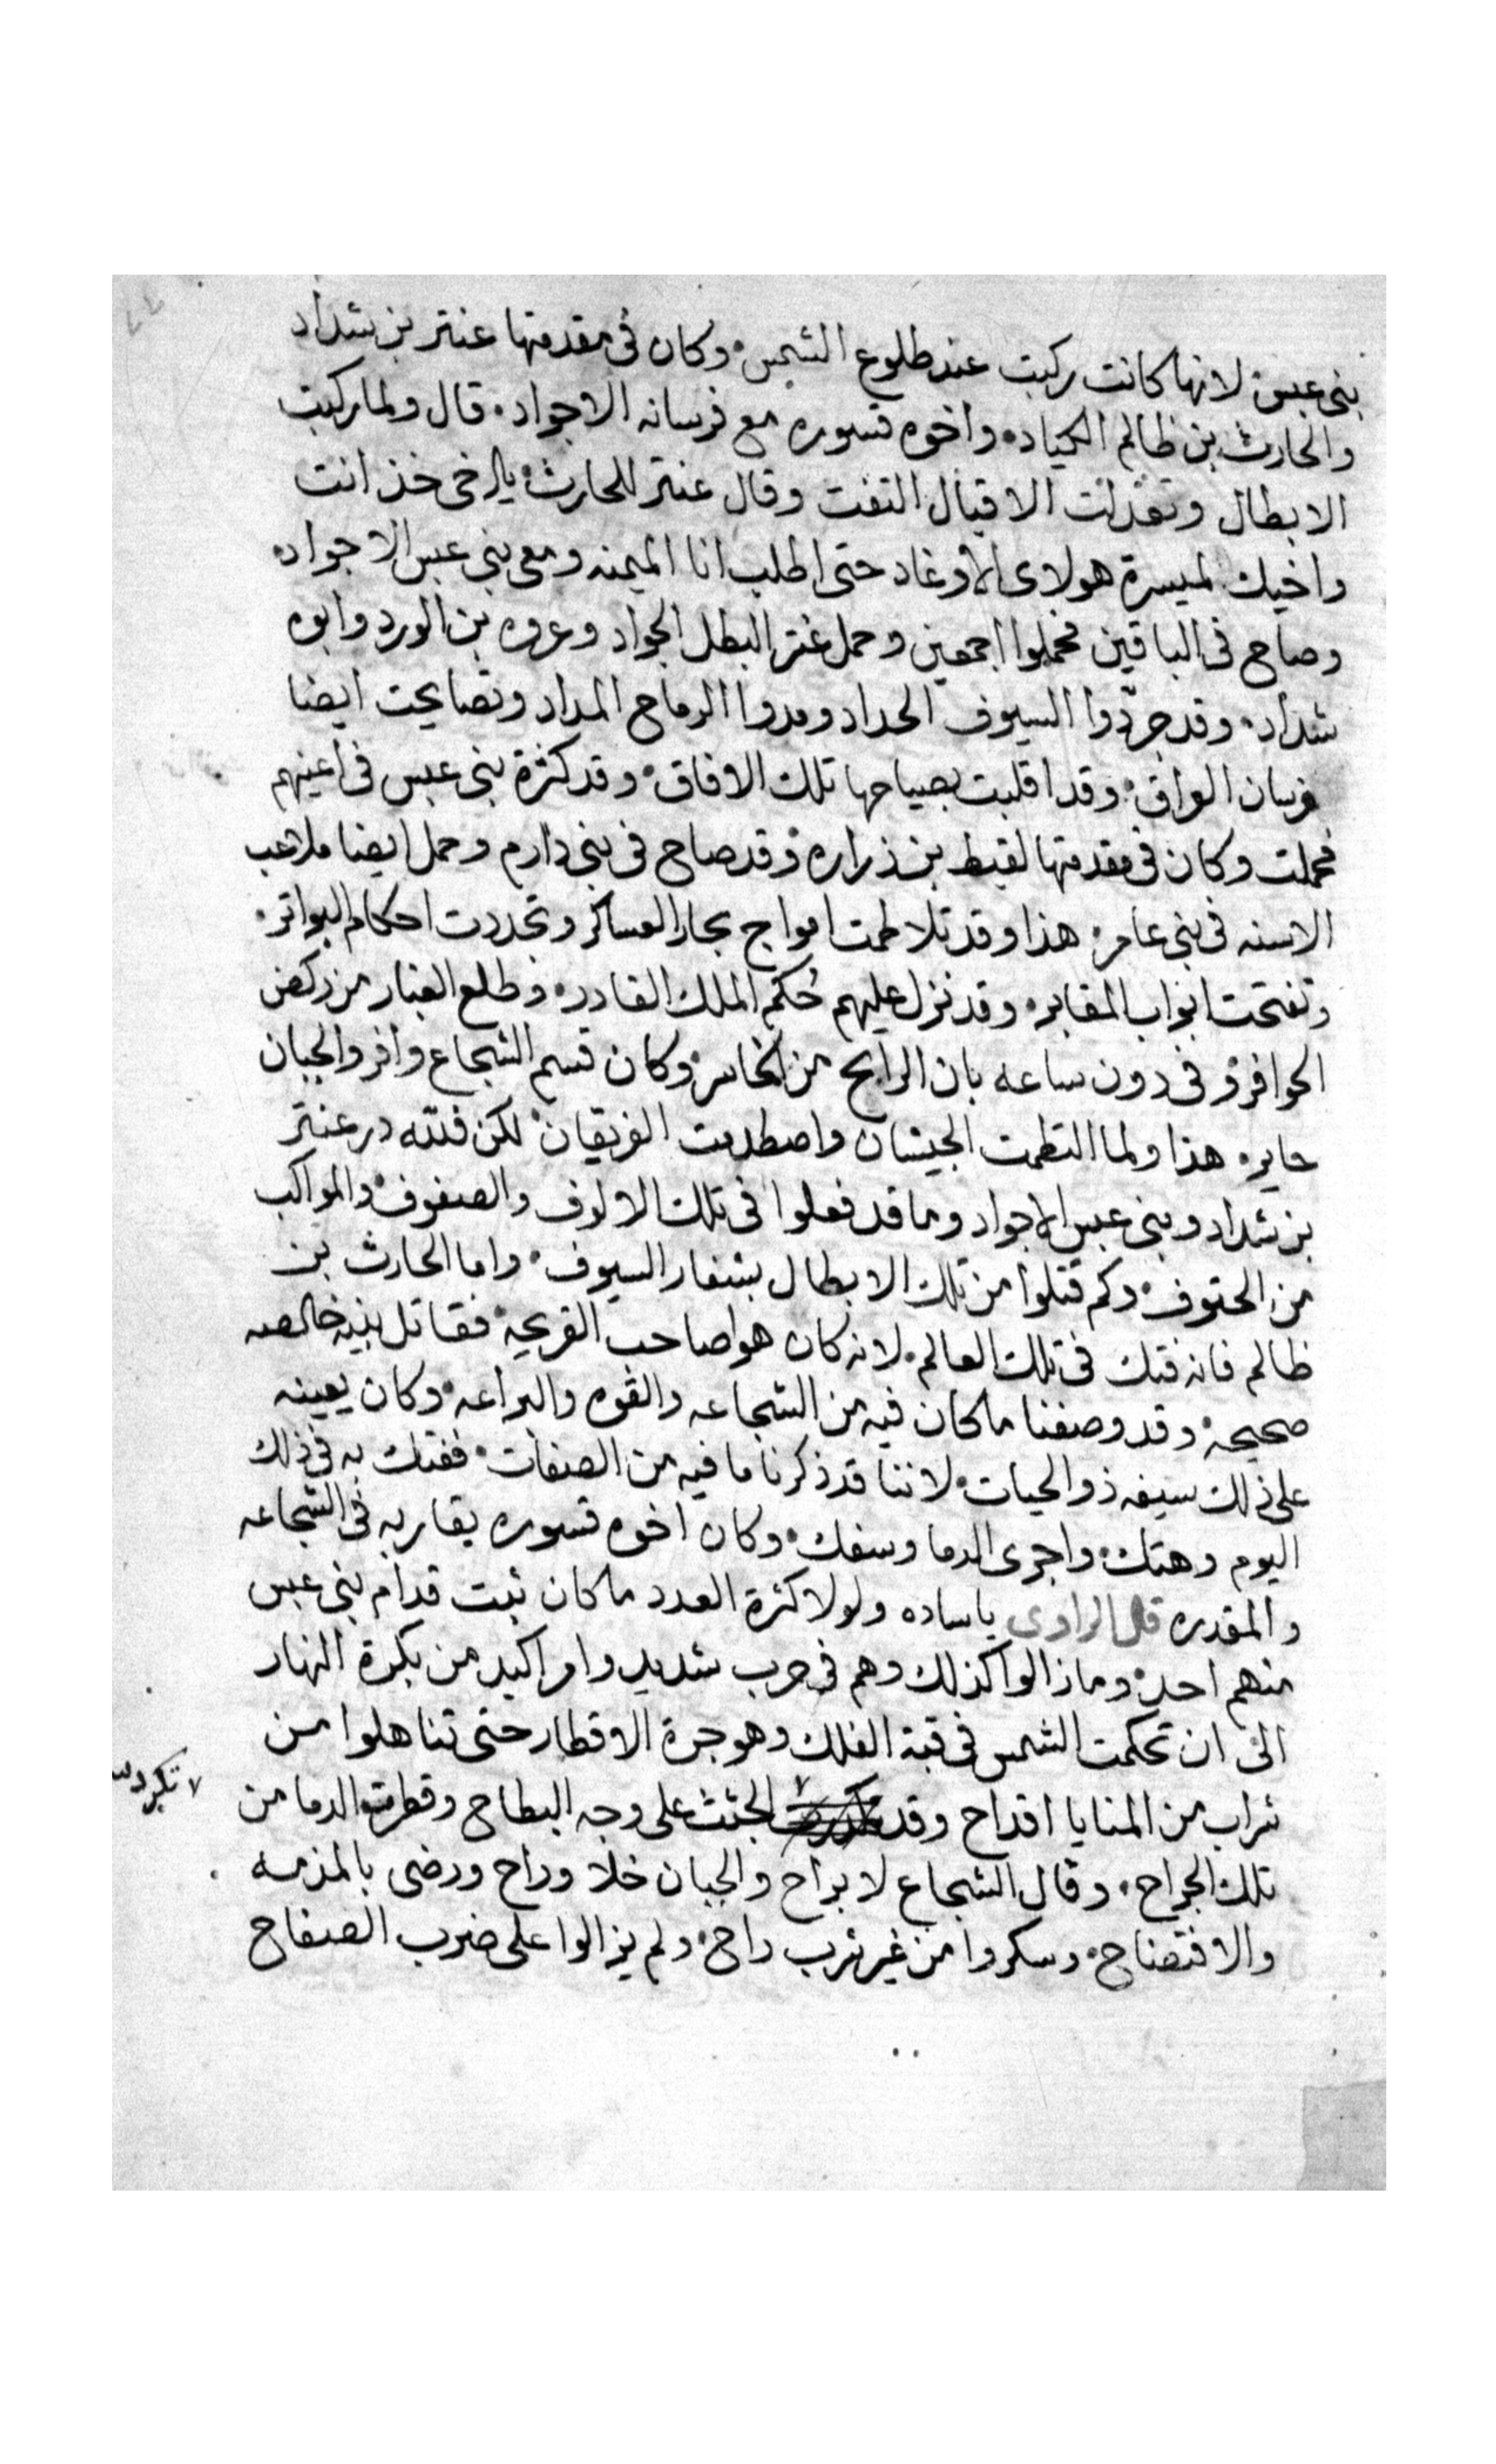 بنى عبس لانها كانت ركبت عند طلوع الشمس وكان فى مقدمتها عنتر بن شداد
والحارث بن ظالم الكياد واخوه قسوره مع فرسانه الاجواد قال ولما ركبت
الابطال وتعدلت الاقيال التفت وقال عنتر للحارث يا اخى خذ انت
واخيك لميسرة هولاى الاوغاد حتى اطلب انا الميمنه ومعى بنى عبس الاجواد
وصاح فى الباقين فحملوا اجمعين وحمل عنتر البطل الجواد وعروه بن الورد وابوه
شداد وقد جردّوا السيوف الحداد ومدوا الرماح المداد وتصايحت ايضا
فرسان العراق وقد اقلبت بصياحها تلك الافاق وقد كثرة بنى عبس فى اعينهم
فحملت وكان فى مقدمتها لقيط بن زراره وقد صاح فى بنى دارم وحمل ايضا ملاعب
الاسنه فى بنى عامر هذا وقد تلاطمت امواج بحار العساكر وتجددت احكام البواتر
وتفتحت ابواب المقابر وقد نزل عليهم حُكم الملك القادر وطلع الغبار من ركض
الحوافر وفى دون ساعه بان الرابح من الخاسر وكان قسم الشجاع وافر والجبان
حاير هذا ولما التطمت الجيشان واصطدمت الفريقان لكن فلله در عنتر
بن شداد وبنى عبس الاجواد وما قد فعلوا فى تلك الالوف والصفوف والمواكب
من الحتوف وكم قتلوا من تلك الابطال بشفار السيوف واما الحارث بن
ظالم فانه فتك فى تلك العالم لانه كان هوا صاحب القريحه فقاتل بنيه خالصه
صحيحه وقد وصفنا ما كان فيه من الشجاعه والقوه والبراعه وكان يعينه
على ذلك سيفه ذو الحيات لاننا قد ذكرنا ما فيه من الصفات ففتك به فى ذلك
اليوم وهتك واجرى الدما وسفك وكان اخوه قسوره يقاربه فى الشجاعه
والمقدره قال الراوى ياساده ولولا كثرة العدد ما كان ثبت قدام بنى عبس
منهم احد وما زالوا كذلك وهم فى حرب شديد وامر اكيد من بكرة النهار
الى ان تحكمت الشمس فى قبة الفلك وهوجرة الاقطار حتى تناهلوا من
شراب من المنايا اقداح وقد الجثث على وجه البطاح وقطرت الدما من
تلك الجراح وقال الشجاع لا براح والجبان خلا وراح ورضى بالمذمه
والافتضاح وسكروا من غير شرب راح ولم يزالوا على ضرب الصفاح